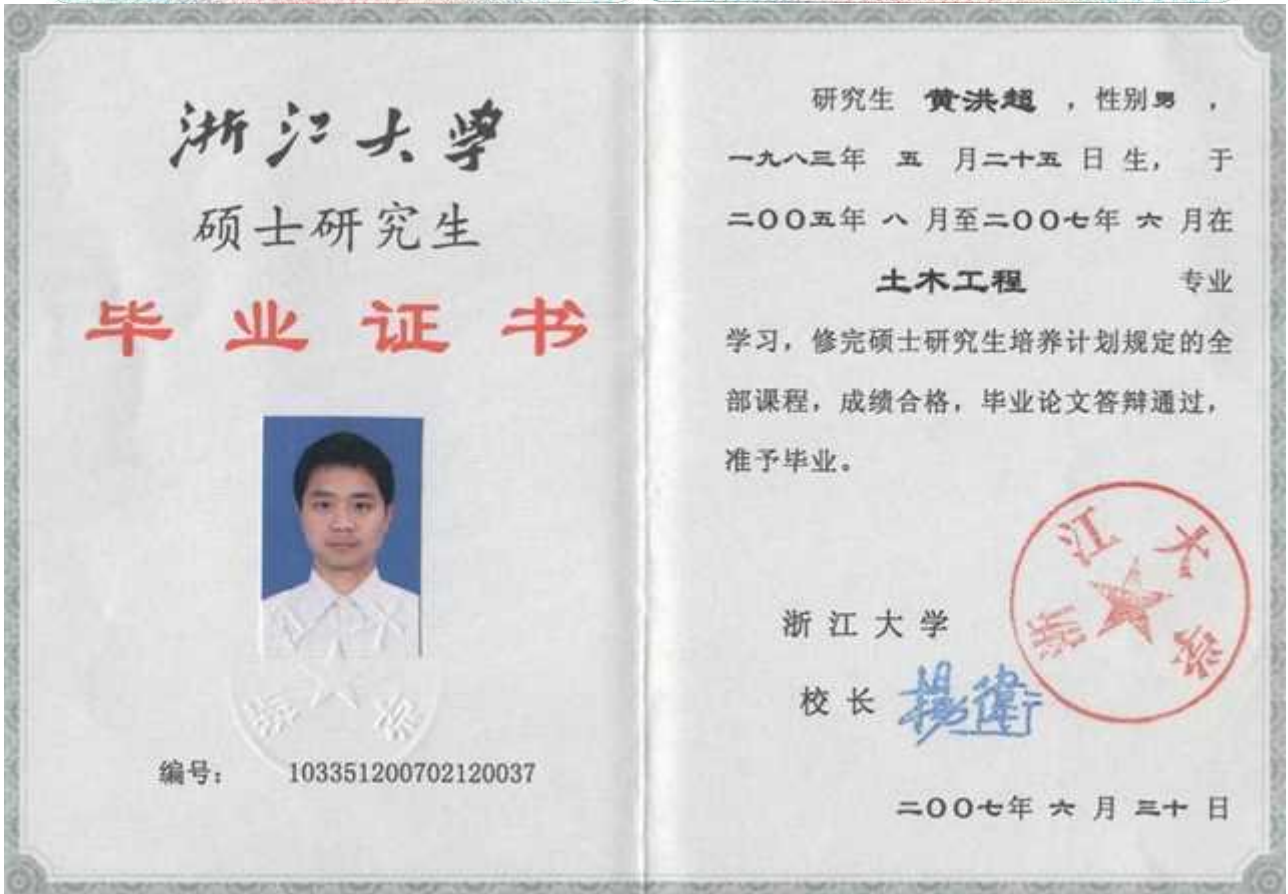 浙江大学
硕士研究生
毕业证书
编号： 103351200702120037
研究生 黄洪超 ，性别男 ，
一九八三年 五 月二十五 日 生， 于
二00五年 八 月至二00七年 六 月在
土木工程 专业
学习，修完硕士研究生培养计划规定的全
部课程，成绩合格，毕业论文答辩通过，
准予毕业。
浙江大学
浙江大学
校长 楊衛
二00七年 六 月 三十 日